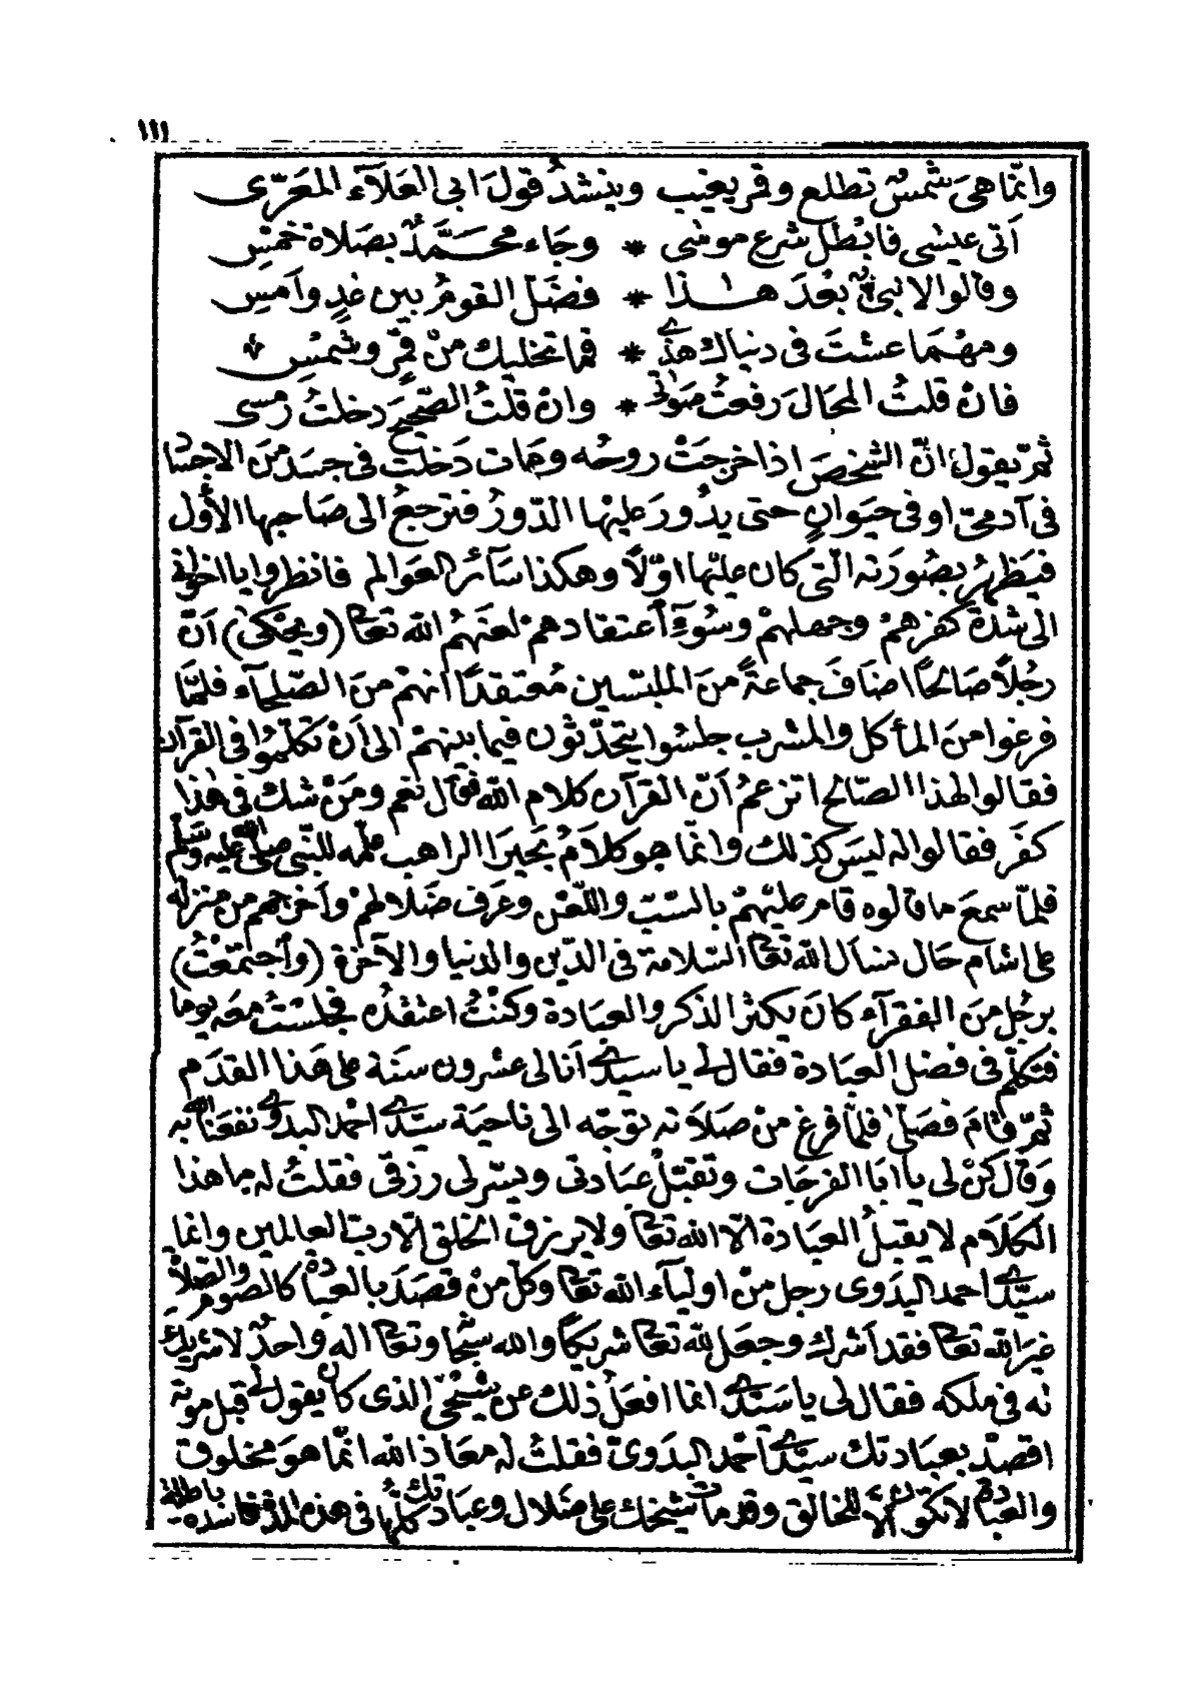 ١١١
وانّما هىَ شمسٌ تطلع وقمر يغيب وينشدُ قولَ ابى العَلَآء المعَرّى
اَتى عيسَى فابْطل شرع موسَى * وجَاء محَمَّدٌ بصَلاة خمَسِ
وقالوا لا نبىٌّ بعْدَ هٰذا * فضَلَّ القومُ بين غدٍ واَمسِ
ومهْمَا عشتَ فى دنياك هذى * فما تخليك منْ قمَرٍ وشمْسِ
فانْ قلتُ المحَالَ رفعتُ صَوتى * وانْ قلتُ الصّحيحَ دخلتُ رَمسى
ثمّ يقول انّ الشخصَ اذا خرجَتْ روحُه ومَات دَخلتْ فى جسَد منَ الاجسَاد
فى آدمىّ او فى حيَوانٍ حتى يدُورَ عليْها الدّورُ فترجعُ الى صَاحبها الأول
فيَظهرُ بصُورَته الّتى كان عليْها اوّلاً وهكذا سَآئر العَوالم فانظروا يا اخوانى
الى شدّة كفرهمْ وجهلهمْ وسُوءِ اَعتقادهمْ لعنَهُم اللّه تعَالى (ويحْكَىٰ) اَنّ
رجُلاً صَالحاً اضَافَ جماعةً منَ الملبّسين مُعتقداً انهمْ منَ الصّلحآء فلمَّا
فرغوا منَ المأكل والمشرب جلسُوا يتحَدّثون فيما بينهمْ الى اَنْ تكلّموا فى القرآن
فقالوا لهذا الصّالح اتزعمُ اَنّ القرآن كلام اللّه فقَال نعَم ومَنْ شك فى هٰذا
كفَر فقالوا له ليسَ كذلك وانّما هو كلاَمُ بَحيرَا الراهب علّمه للنّبى صلى اللّه عليه وسَلّم
فلمّا سمعَ ما قالوه قام عليْهمْ بالسّبّ واللّعْن وعَرف ضَلالهمْ واَخرجهم من منزله
على اشأم حَال نسأل اللّه تعَالى السّلامة فى الدّين والدنيا والآخرَة (واَجتمَعْتُ)
برجُل منَ الفقرآء كانَ يكثر الذكر والعبَادة وكنْتُ اعتقدُه فجلسْتُ معَه يوما
فتكلّم فى فضل العبَادة فقال لى يا سيدى اَنا لى عشرون سنَة على هَذا القدَم
ثمّ قامَ فصَلّىٰ فلمّا فرغ منْ صَلاَته توجّه الى ناحيَة سيّدى احمد البدوى نفعَنا اللّه به
وَقال كنْ لى يا اَبَا الفرجَات وتقبّلْ عبَادتى ويسّر لى رزقى فقلتُ له ما هذا
الكَلاَم لا يقبلُ العبَادة الّا اللّه تعَالى ولا يرزق الخلق الّا ربّ العالمين وانما
سيّدى احمد البدَوى رجل منْ اوليآء اللّه تعَالى وكلّ منْ قصَدَ بالعبادة كالصّوم والصّلاة
غيرَ اللّه تعَالى فقد اَشرك وجعَل للّه تعَالى شريكاً واللّه سبْحَانه وتعَالى اله واحدٌ لا شريك
له فى ملكه فقال لى يا سَيّدى انما افعَلُ ذلك عن شيْخى الذى كان يقول لى قبل موته
اقصدْ بعبَادتك سيّدى اَحمد البدَوىّ فقلتُ له معَاذ اللّه انّما هوَ مخلوق
والعبَادة لا تكون الّا للخالق وقد مات شيخك على ضَلال وعبَادتك كلّها فى هذه المدة فاسدَة باطلة